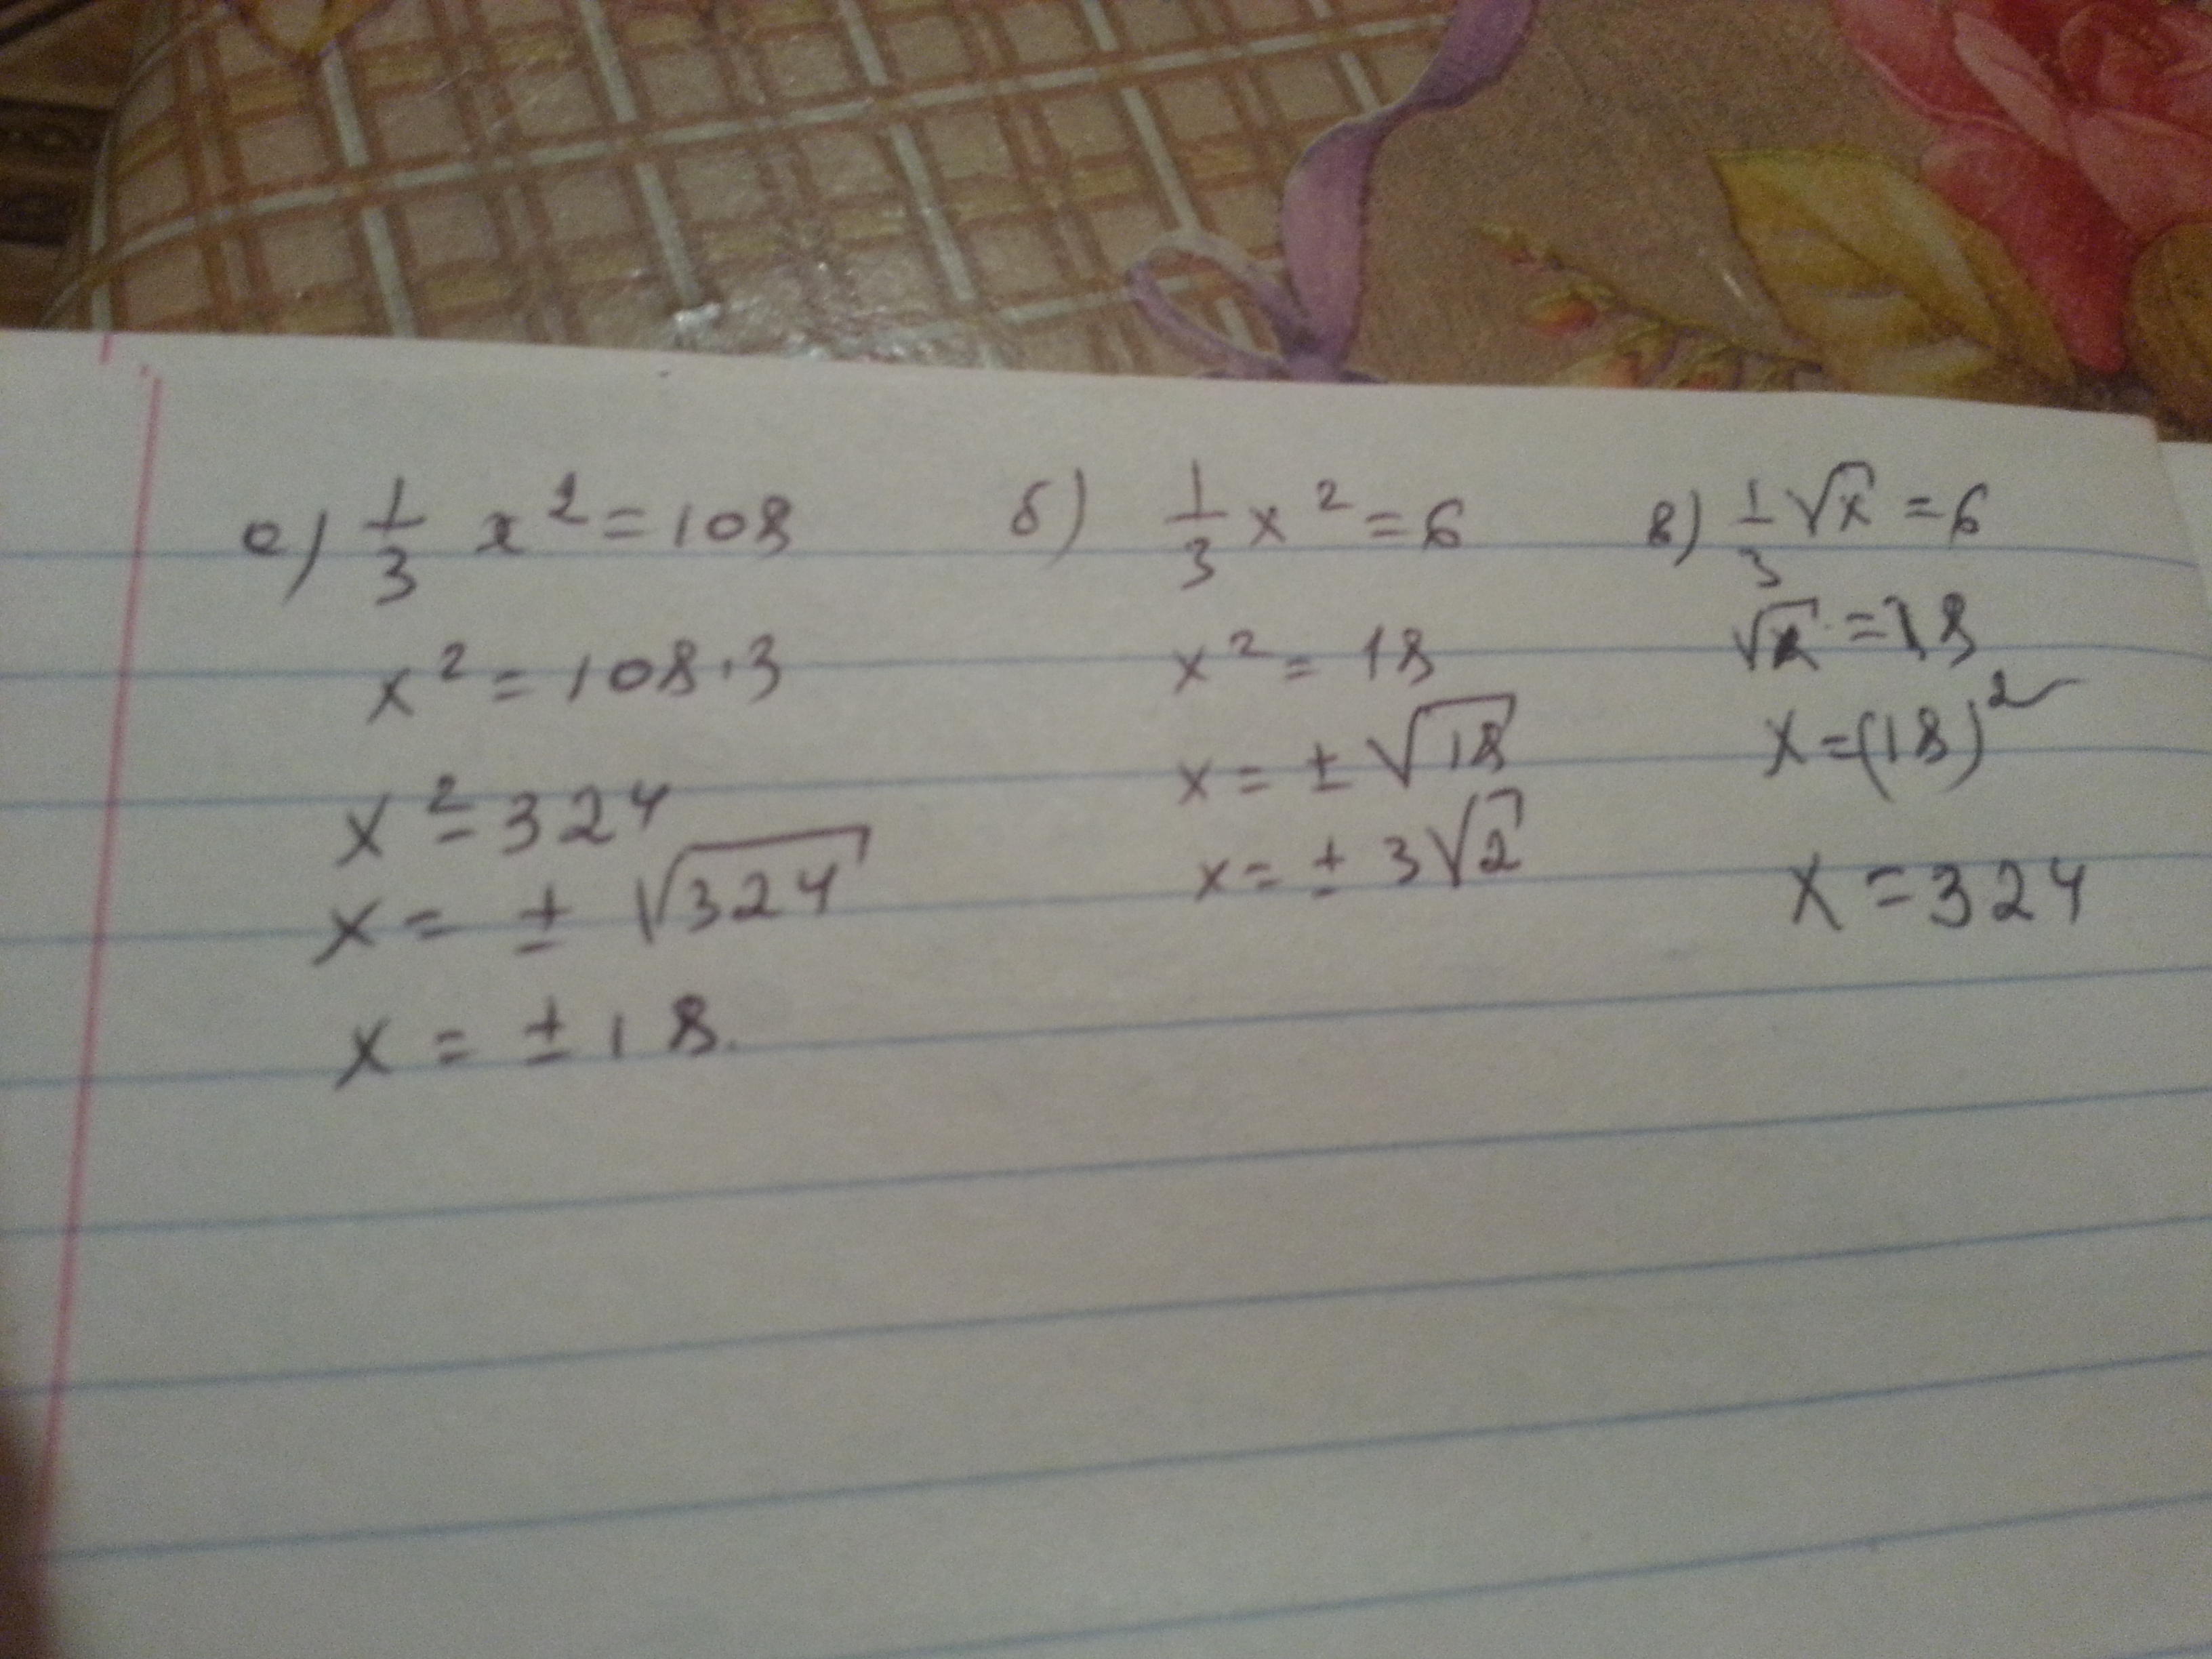 а) 1/3 x² = 108
x² = 108 · 3
x² = 324
x = ± √324
x = ± 18.
б) 1/3 x² = 6
x² = 18
x = ± √18
x = ± 3√2
в) 1/3 √x = 6
√x = 18
x = (18)²
x = 324